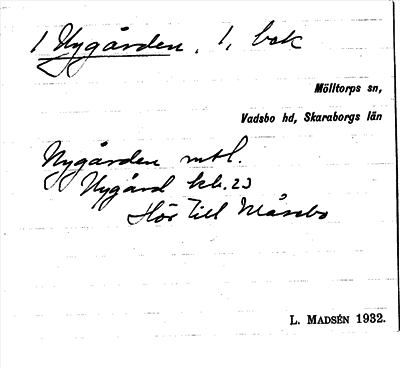 1 Nygården, 1, bok
Mölltorps sn,
Vadsbo hd, Skaraborgs län
Nygården mtl.
(Nygård kb. 2)
Hör till Måssbo
L. MADSÉN 1932.